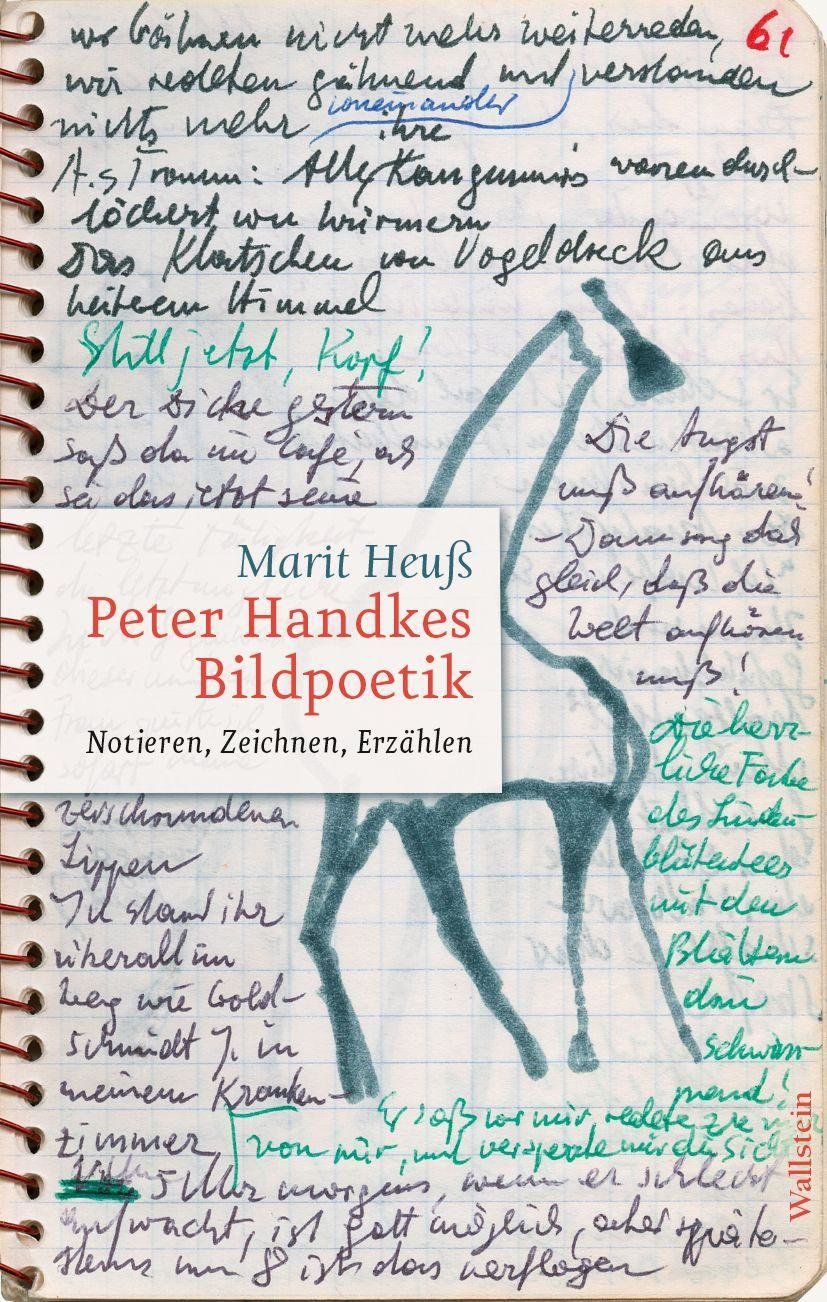 61
wir können nicht mehr weiterreden,
wir redeten gähnend und verstanden
nichts mehr voneinander
ihre
A.s Traum: Alle Kaugummis waren durch-
löchert von Würmern
Das Klatschen von Vogeldreck aus
heiterem Himmel
Still jetzt, Kopf!
Der Dicke gestern
saß da im Café, als
sei das jetzt seine
letzte Tätigkeit
Die Angst
muß aufhören!
– Dann sag doch
gleich, daß die
Welt aufhören
muß!
Marit Heuß
Peter Handkes
Bildpoetik
Notieren, Zeichnen, Erzählen
Die herr-
liche Farbe
des Linden-
blütentees
mit den
Blättern
drin
schwim-
mend!
zerschundenen
Lippen
stand ihr
überall im
Weg wie Gold-
schmidt J. in
meinem Kranken-
zimmer
Er saß vor mir, redete zu mir
von mir, und versperrte mir die Sicht
5 Uhr morgens, wenn er schlecht
aufwacht, ist Gott möglich, aber späte-
stens um 8 ist das verflogen
Wallstein